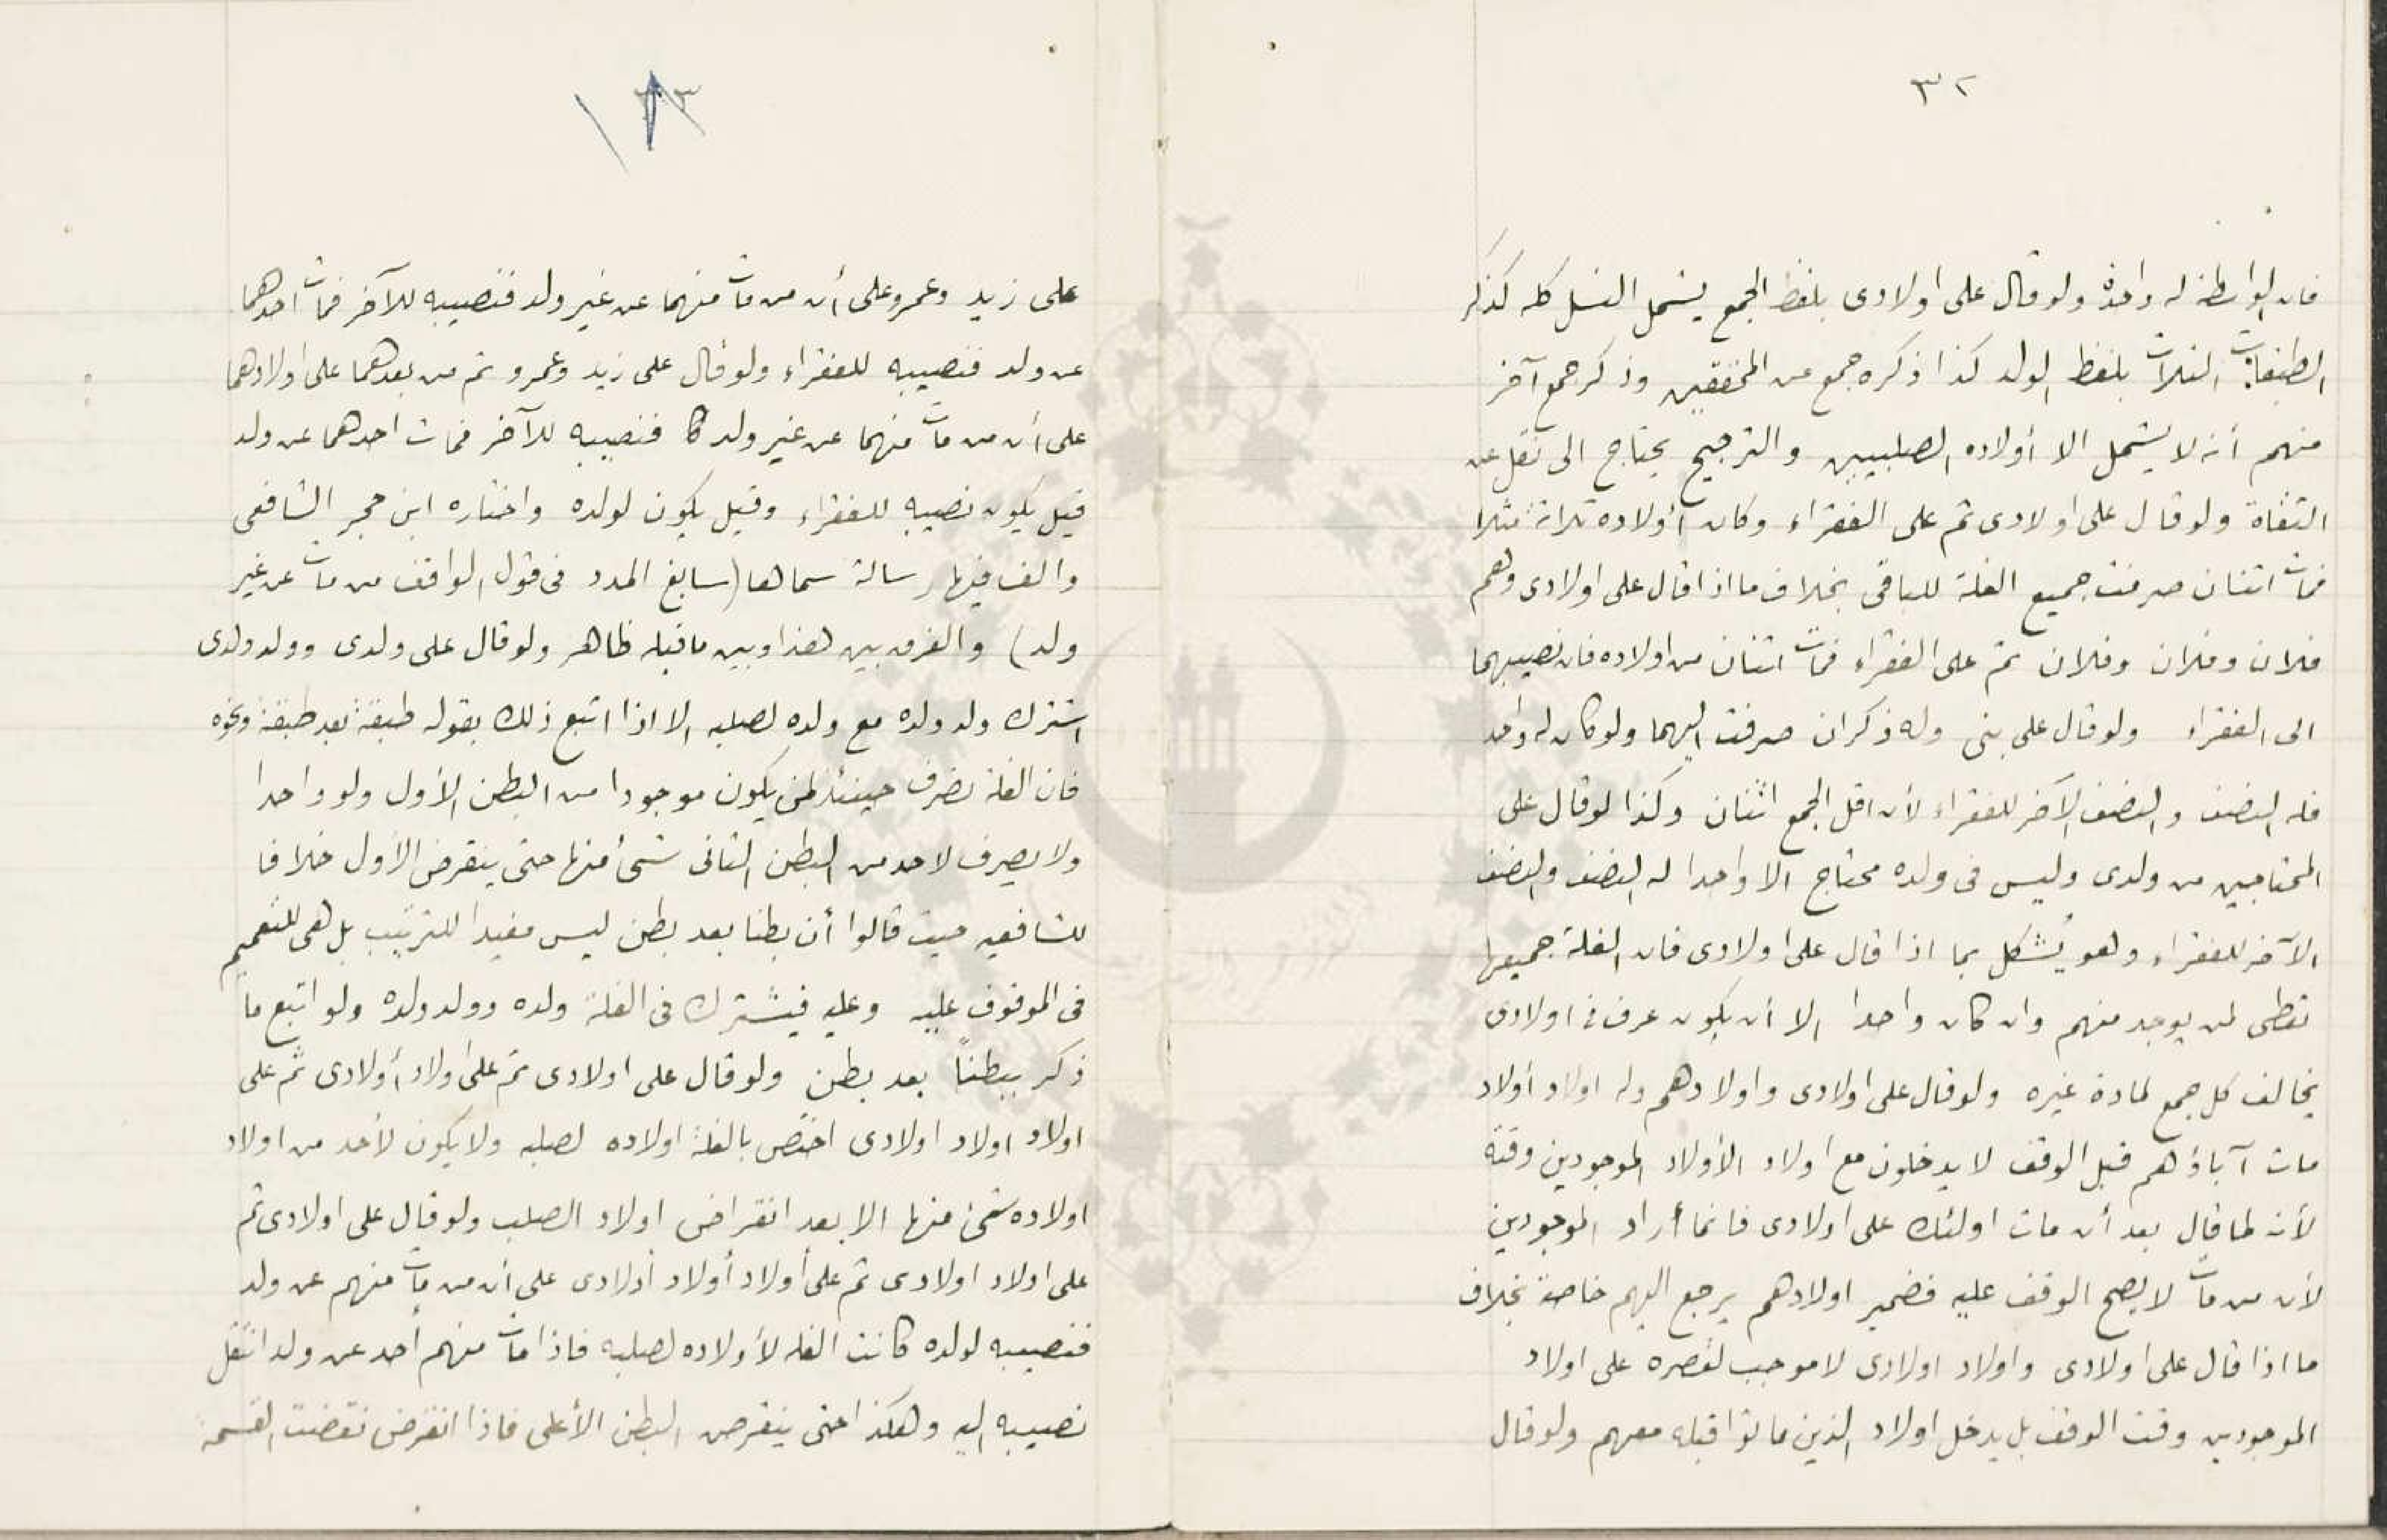 ٣٢
فان الواسطة له واحدة ولو قال على اولادى بلفظ الجمع يشمل النسل كله كذكر
الطبقات الثلاث بلفظ الولد كذا ذكره جمع من المحققين وذكر جمع آخر
منهم أنه لا يشمل الا أولاده الصلبيين والترجيح يحتاج الى نقل عن
الثقاة ولو قال على اولادى ثم على الفقراء وكان أولاده ثلاثة مثلا
فمات اثنان صرفت جميع الغلة للباقى بخلاف ما اذا قال على اولادى وهم
فلان وفلان وفلان ثم على الفقراء فمات اثنان من اولاده فان نصيبهما
الى الفقراء ولو قال على بنى وله ذكران صرفت اليهما ولو كان له واحد
فله النصف والنصف الآخر للفقراء لأن اقل الجمع اثنان وكذا لو قال على
المحتاجين من ولدى وليس فى ولده محتاج الا واحدا له النصف والنصف
الآخر للفقراء وهو يُشكل بما اذا قال على اولادى فان الغلة جميعها
تعطى لمن يوجد منهم وان كان واحدا الا أن يكون عرف فى اولادى
يخالف كل جمع لمادة غيره ولو قال على اولادى واولادهم وله اولاد أولاد
مات آباؤهم قبل الوقف لا يدخلون مع اولاد الأولاد الموجودين وقته
لأنه لما قال بعد أن مات اولئك على اولادى فانما أراد الموجودين
لأن من مات لا يصح الوقف عليه فضمير اولادهم يرجع اليهم خاصة بخلاف
ما اذا قال على اولادى واولاد اولادى لا موجب لقصره على اولاد
الموجودين وقت الوقف بل يدخل اولاد الذين ماتوا قبله معهم ولو قال
على زيد وعمرو على أن من مات منهما عن غير ولد فنصيبه للآخر فمات احدهما
عن ولد فنصيبه للفقراء ولو قال على زيد وعمرو ثم من بعدهما على اولادهما
على أن من مات منهما عن غير ولد كا فنصيبه للآخر فمات احدهما عن ولد
قيل يكون نصيبه للفقراء وقيل يكون لولده واختاره ابن حجر الشافعى
والف فيها رسالة سماها (سابغ المدد فى قول الواقف من مات عن غير
ولد) والفرق بين هذا وبين ما قبله ظاهر ولو قال على ولدى وولد ولدى
اشترك ولد ولده مع ولده لصلبه الا اذا اتبع ذلك بقوله طبقة بعد طبقة ونحوه
فان الغلة تصرف حينئذ لمن يكون موجودا من البطن الأول ولو واحدا
ولا يصرف لاحد من البطن الثانى شئ منها حتى ينقرض الأول خلافا
للشافعيه حيث قالوا أن بطنا بعد بطن ليس مفيدا للترتيب بل هى للتعميم
فى الموقوف عليه وعليه فيشترك فى الغلة ولده وولد ولده ولو اتبع ما
ذكر ببطناً بعد بطن ولو قال على اولادى ثم على اولاد أولادى ثم على
اولاد اولاد اولادى اختص بالغلة اولاده لصلبه ولا يكون لأحد من اولاد
اولاده شئ منها الا بعد انقراض اولاد الصلب ولو قال على اولادى ثم
على اولاد اولادى ثم على أولاد أولاد أولادى على أن من مات منهم عن ولد
فنصيبه لولده كانت الغله لأولاده لصلبه فاذا مات منهم أحد عن ولد انتقل
نصيبه اليه وهكذا حتى ينقرض البطن الأعلى فاذا انقرض نقضت القسمة